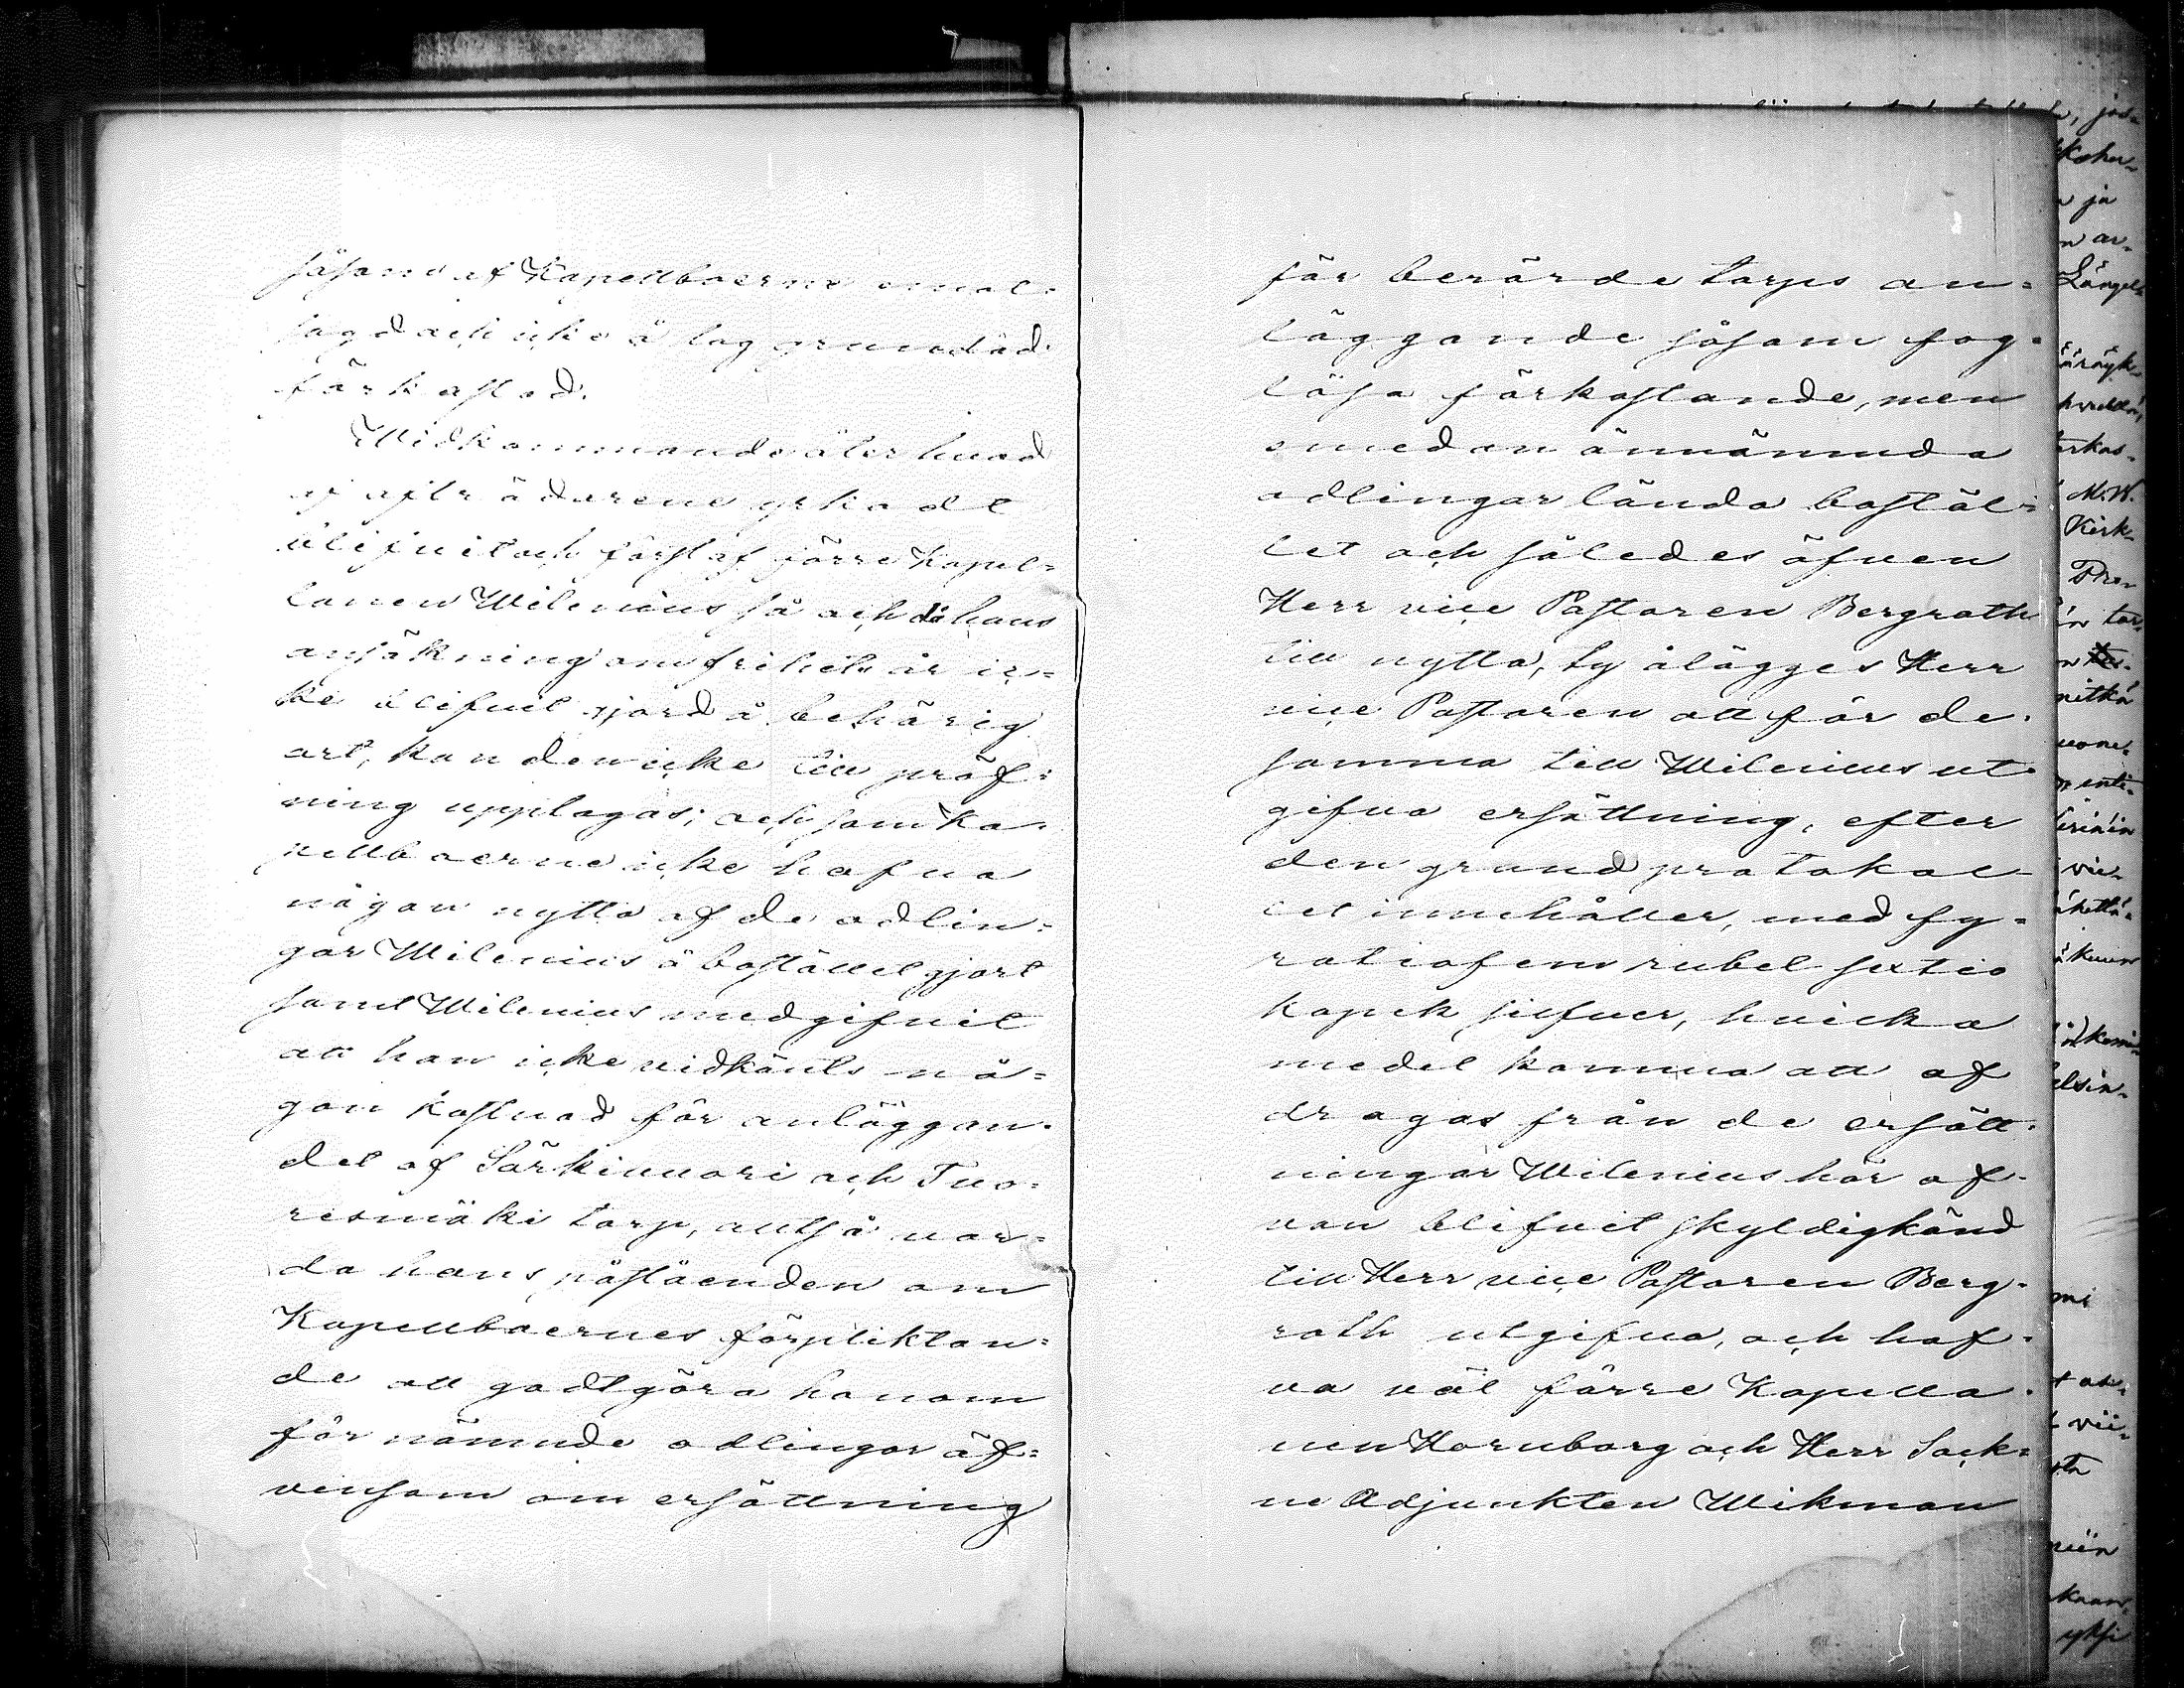 såsom af Kapellboerne emot-
sagd och icke å lag grundad
förkastad.
Widkommande åter hvad
af afträdaren yrkadt
blifvit och först af förre Kapel-
lanen Wilenius så och då hans
ansökning om frihets år ic-
ke blifvit gjord å behörig
ort, kan den icke till pröf-
ning upptagas; och som Ka-
pellboerne icke hafva
någon nytta af de odlin-
gar Wilenius å bostället gjort
samt Wilenius medgifvit
att han icke vidkänts nå-
gon kostnad för anläggan-
det af Särkivuori och Tuo-
resmäki torp, alltså var-
da hans påståenden om
Kapellboernes förpliktan-
de att godtgöra honom
för nämnde odlingar äf-
vensom om ersättning
för berörde torps an-
läggande såsom fog-
lösa förkastande, men
emedan ännämnda
odlingar lända bostäl-
let och således äfven
Herr vice Pastoren Bergroth
till nytta, ty ålägges Herr
vice Pastoren att för de-
samma till Wilenius ut-
gifva ersättning, efter
den grund protokol-
let innehåller, med fy-
ratiofem rubel sextio
kopek silfver, hvilka
medel komma att af
dragas från de ersätt-
ningar Wilenius här of-
van blifvit skyldigkänd
till Herr vice Pastoren Berg-
roth utgifva, och haf-
va väl förre Kapella-
nen Hornborg och Herr Sock-
ne Adjunkten Wikman